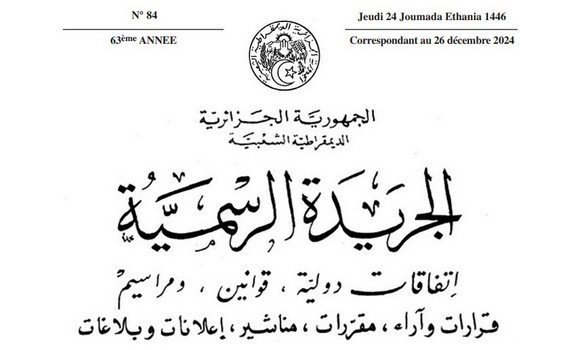 N° 84
63ème ANNEE
Jeudi 24 Joumada Ethania 1446
Correspondant au 26 décembre 2024
الجمهورية الجزائرية
الديمقراطية الشعبية
الجريدة الرسمية
إتفاقات دولية ، قوانين ، ومراسيم
قرارات وآراء ، مقررات ، مناشير ، إعلانات وبلاغات